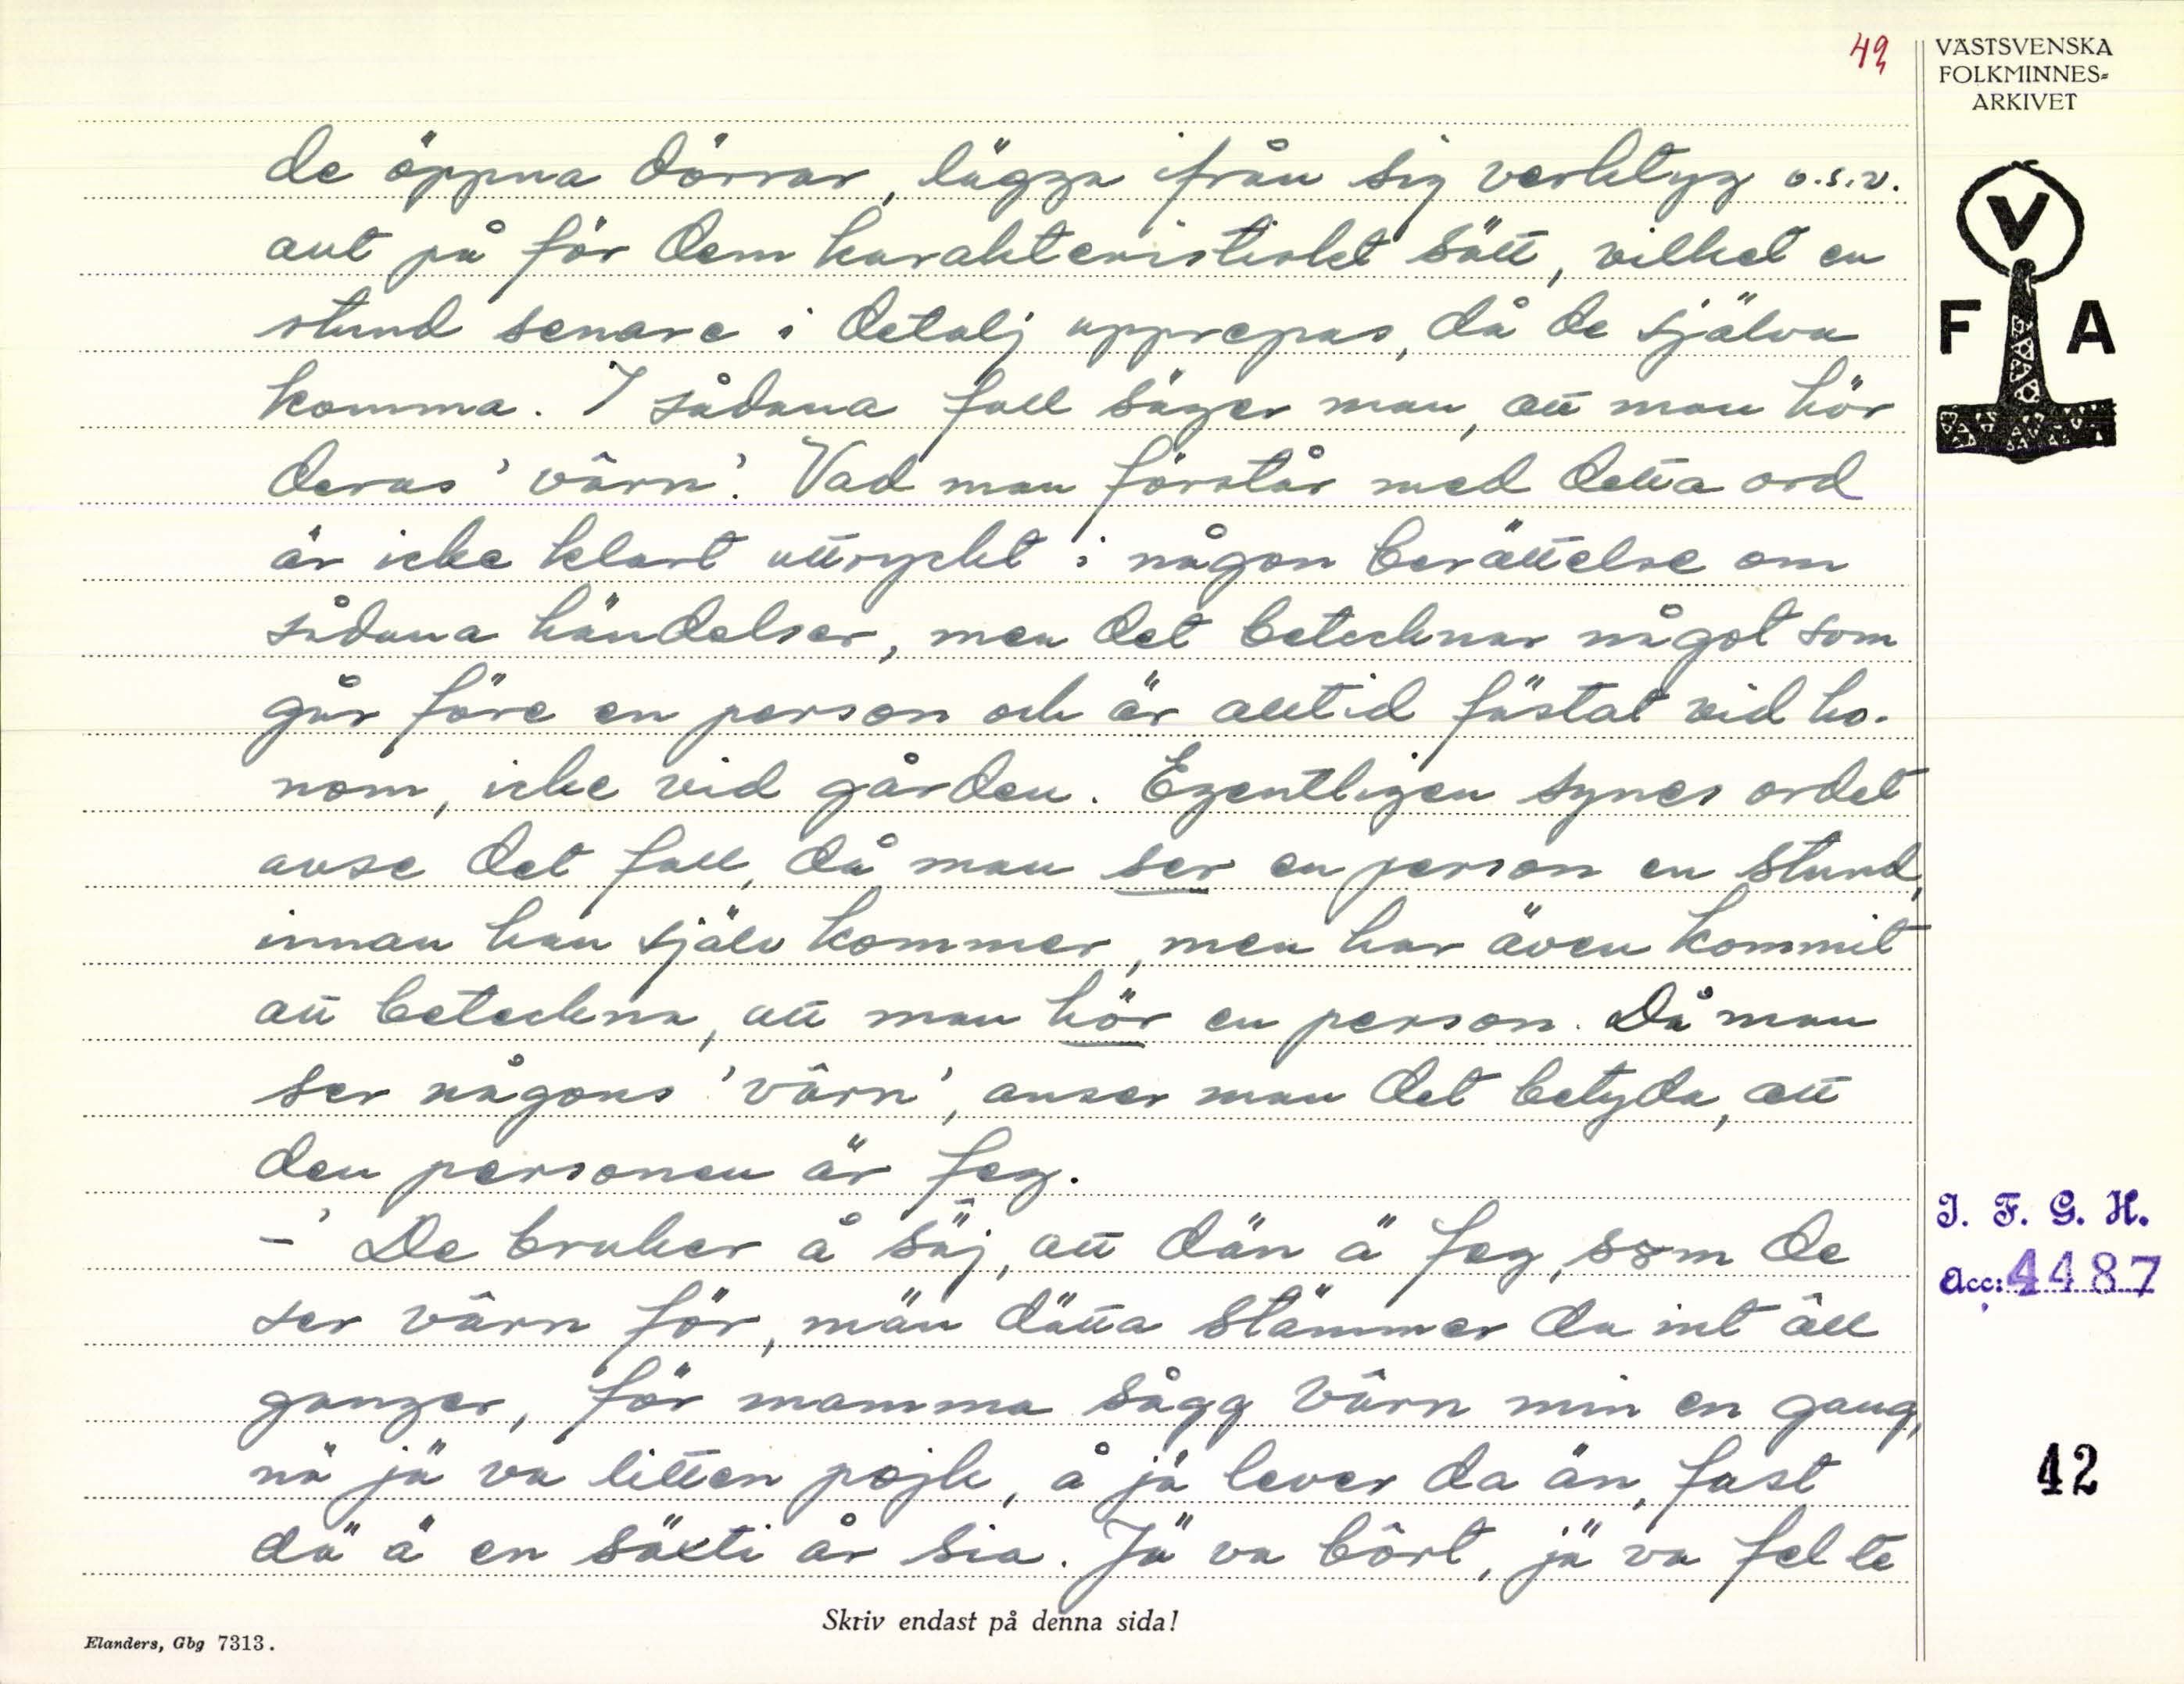 49
VÄSTSVENSKA
FOLKMINNES=
ARKIVET
V
F A
de öppna dörrar, lägga ifrån sig verktyg o.s.v.
allt på för dem karakteristiskt sätt, vilket en
stund senare i detalj upprepas, då de själva
komma. I sådana fall säger man, att man hör
deras 'vârn'. Vad man förstår med detta ord
är icke klart uttryckt i någon berättelse om
sådana händelser, men det betecknar något som
går före en person och är alltid fästat vid ho-
nom, icke vid gården. Egentligen synes ordet
avse det fall, då man ser en person en stund,
innan han själv kommer, men har även kommit
att beteckna, att man hör en person. Då man
ser någons 'vârn', anser man det betyda, att
den personen är feg.
-'De bruker å säj, att dän ä feg, som de
ser vârn för, män dätta stämmer da int âll
ganger, för mamma sågg vârn min en gang,
nä jä va litten pojk, å jä lever da än, fast
dä ä en säxti år sia. Jä va bôrt, jä va fel te
I. F. G. H.
Acc: 4487
42
Skriv endast på denna sida!
Elanders, Gbg 7313.